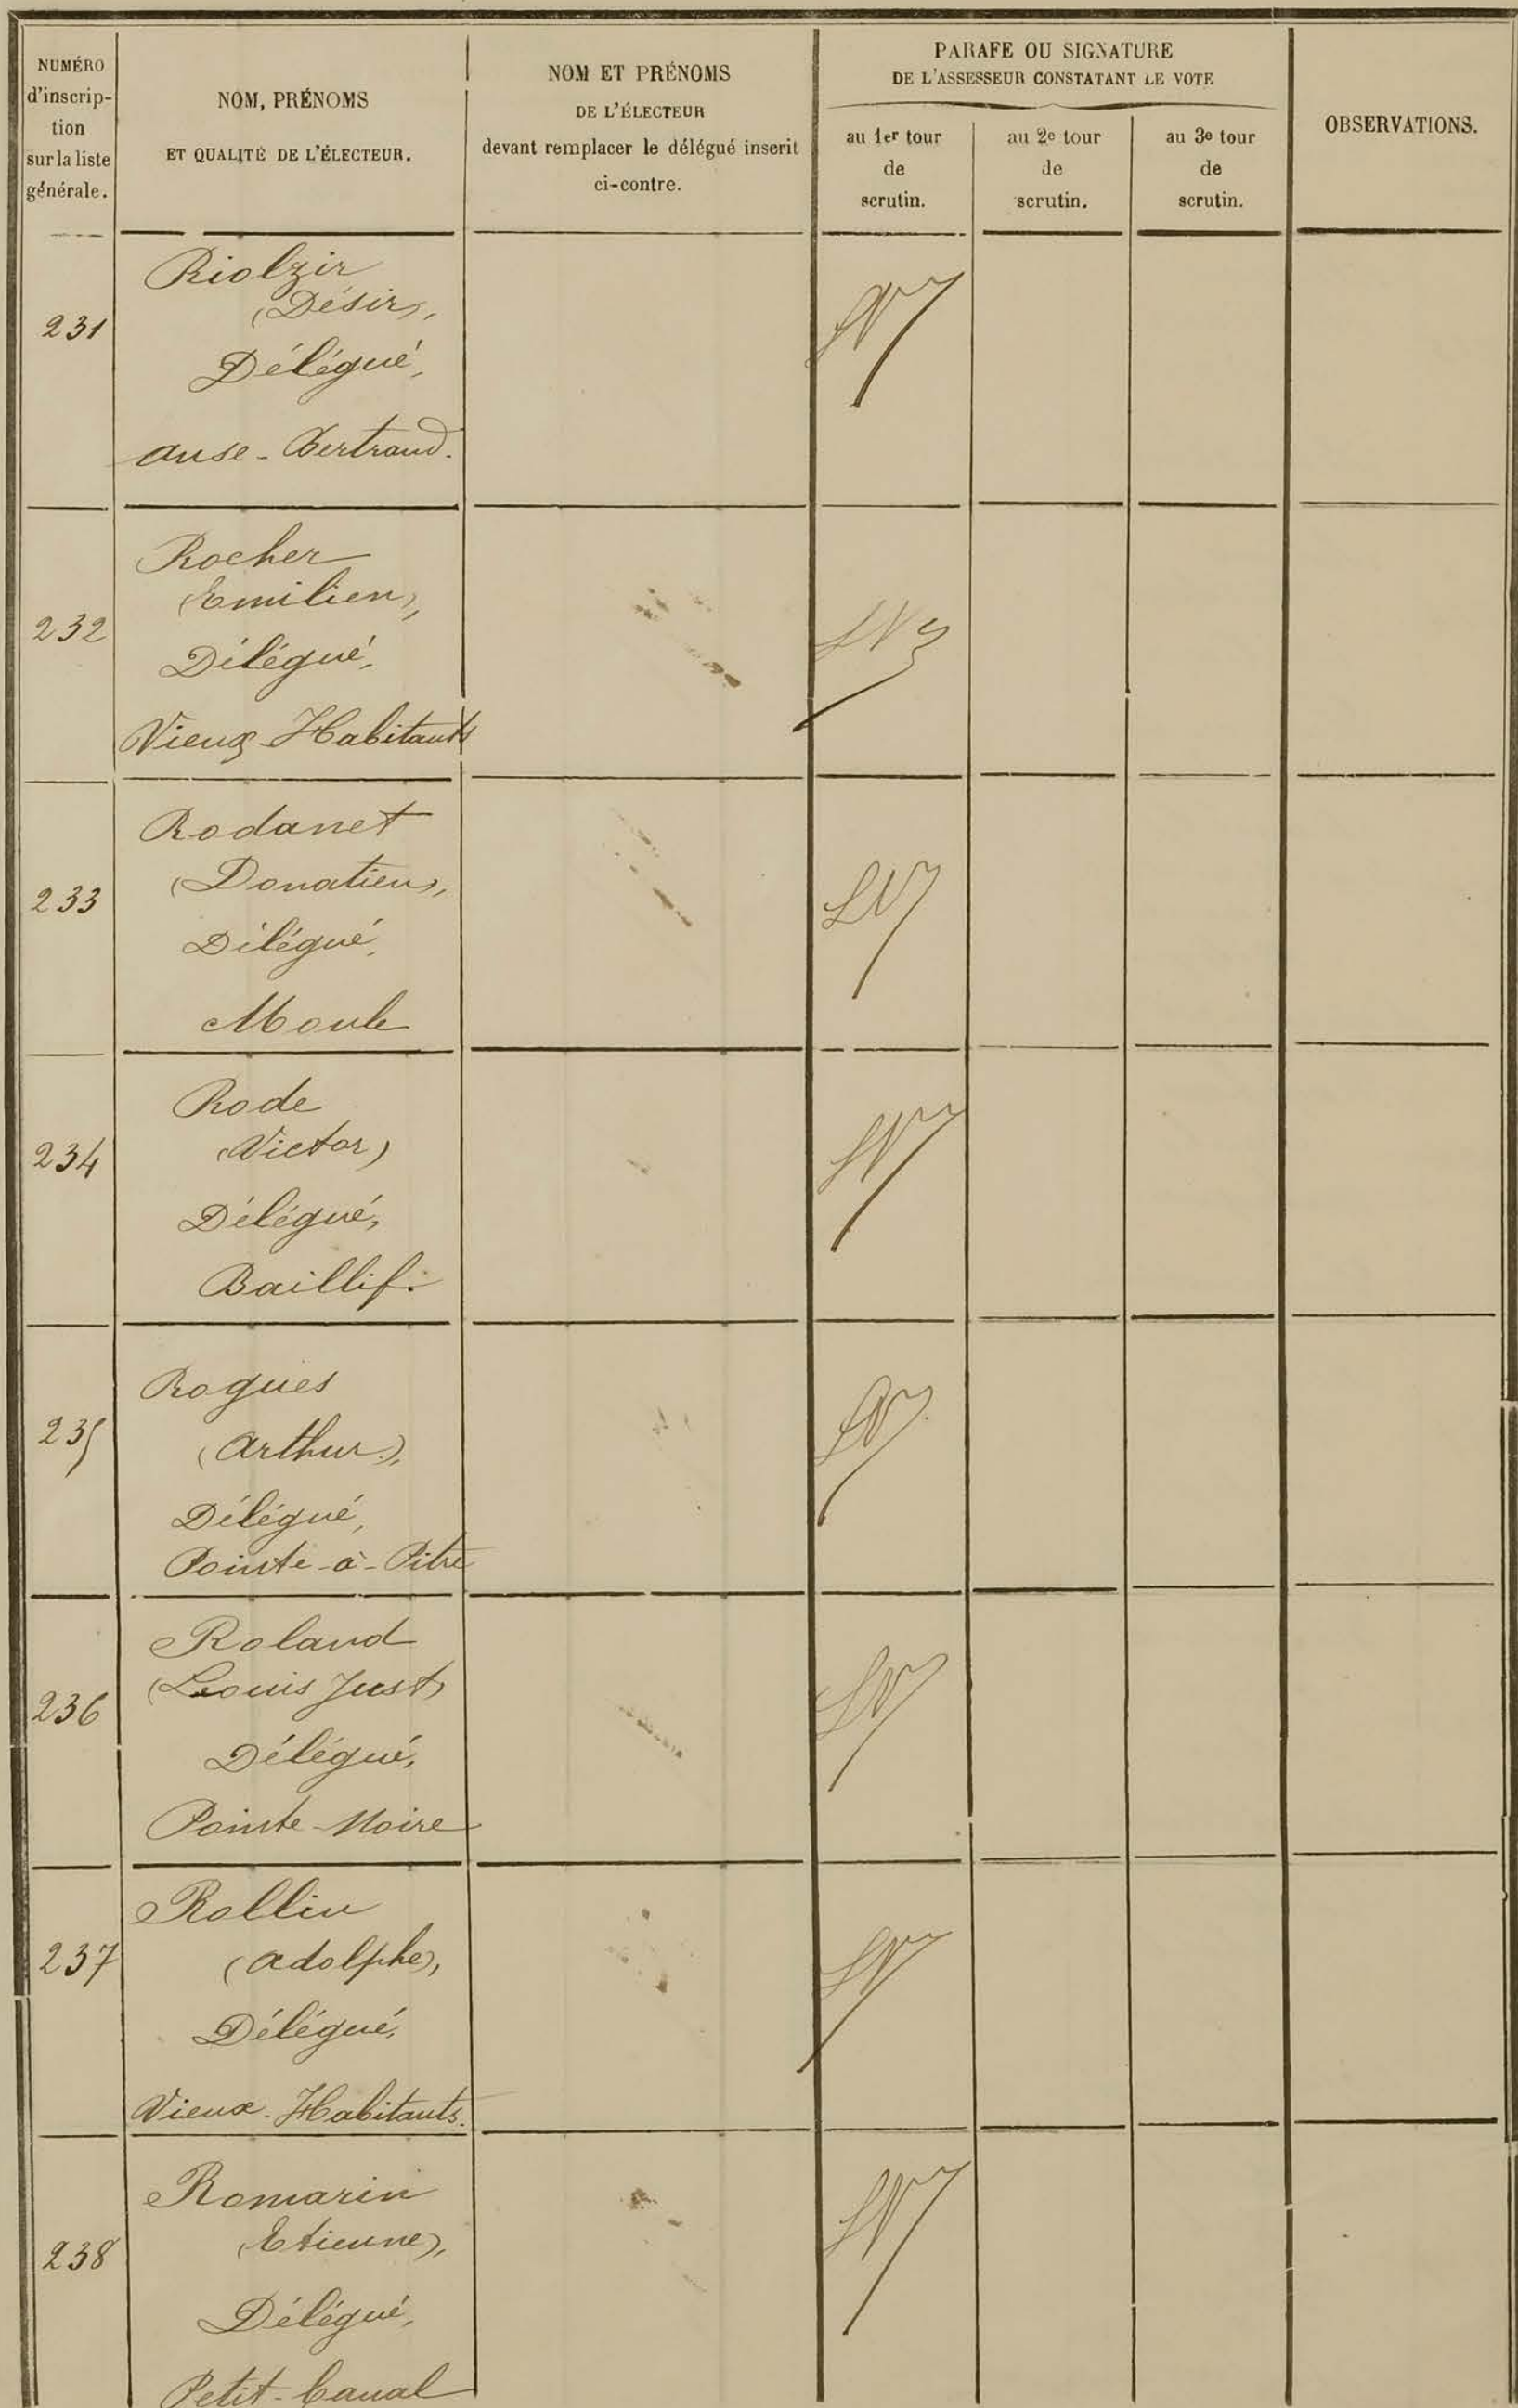 NUMÉRO
d'inscrip-
tion
sur la liste
générale.
NOM, PRÉNOMS
ET QUALITÉ DE L'ÉLECTEUR.
NOM ET PRÉNOMS
DE L'ÉLECTEUR
devant remplacer le délégué inscrit
ci-contre.
PARAFE OU SIGNATURE
DE L'ASSESSEUR CONSTATANT LE VOTE
au 1er tour
de
scrutin.
au 2e tour
de
scrutin.
au 3e tour
de
scrutin.
OBSERVATIONS.
231
Riolzir
(Désir),
Délégué,
Anse-Bertrand.
232
Rocher
(Emilien),
Délégué,
Vieux-Habitants
233
Rodanet
(Donatien),
Délégué,
Moule
234
Rode
(Victor)
Délégué,
Baillif.
235
Rogues
(Arthur),
Délégué,
Pointe-à-Pitre
236
Roland
(Louis Just)
Délégué,
Pointe-Noire
237
Rollin
(Adolphe),
Délégué,
Vieux-Habitants.
238
Romarin
(Etienne),
Délégué,
Petit-Canal